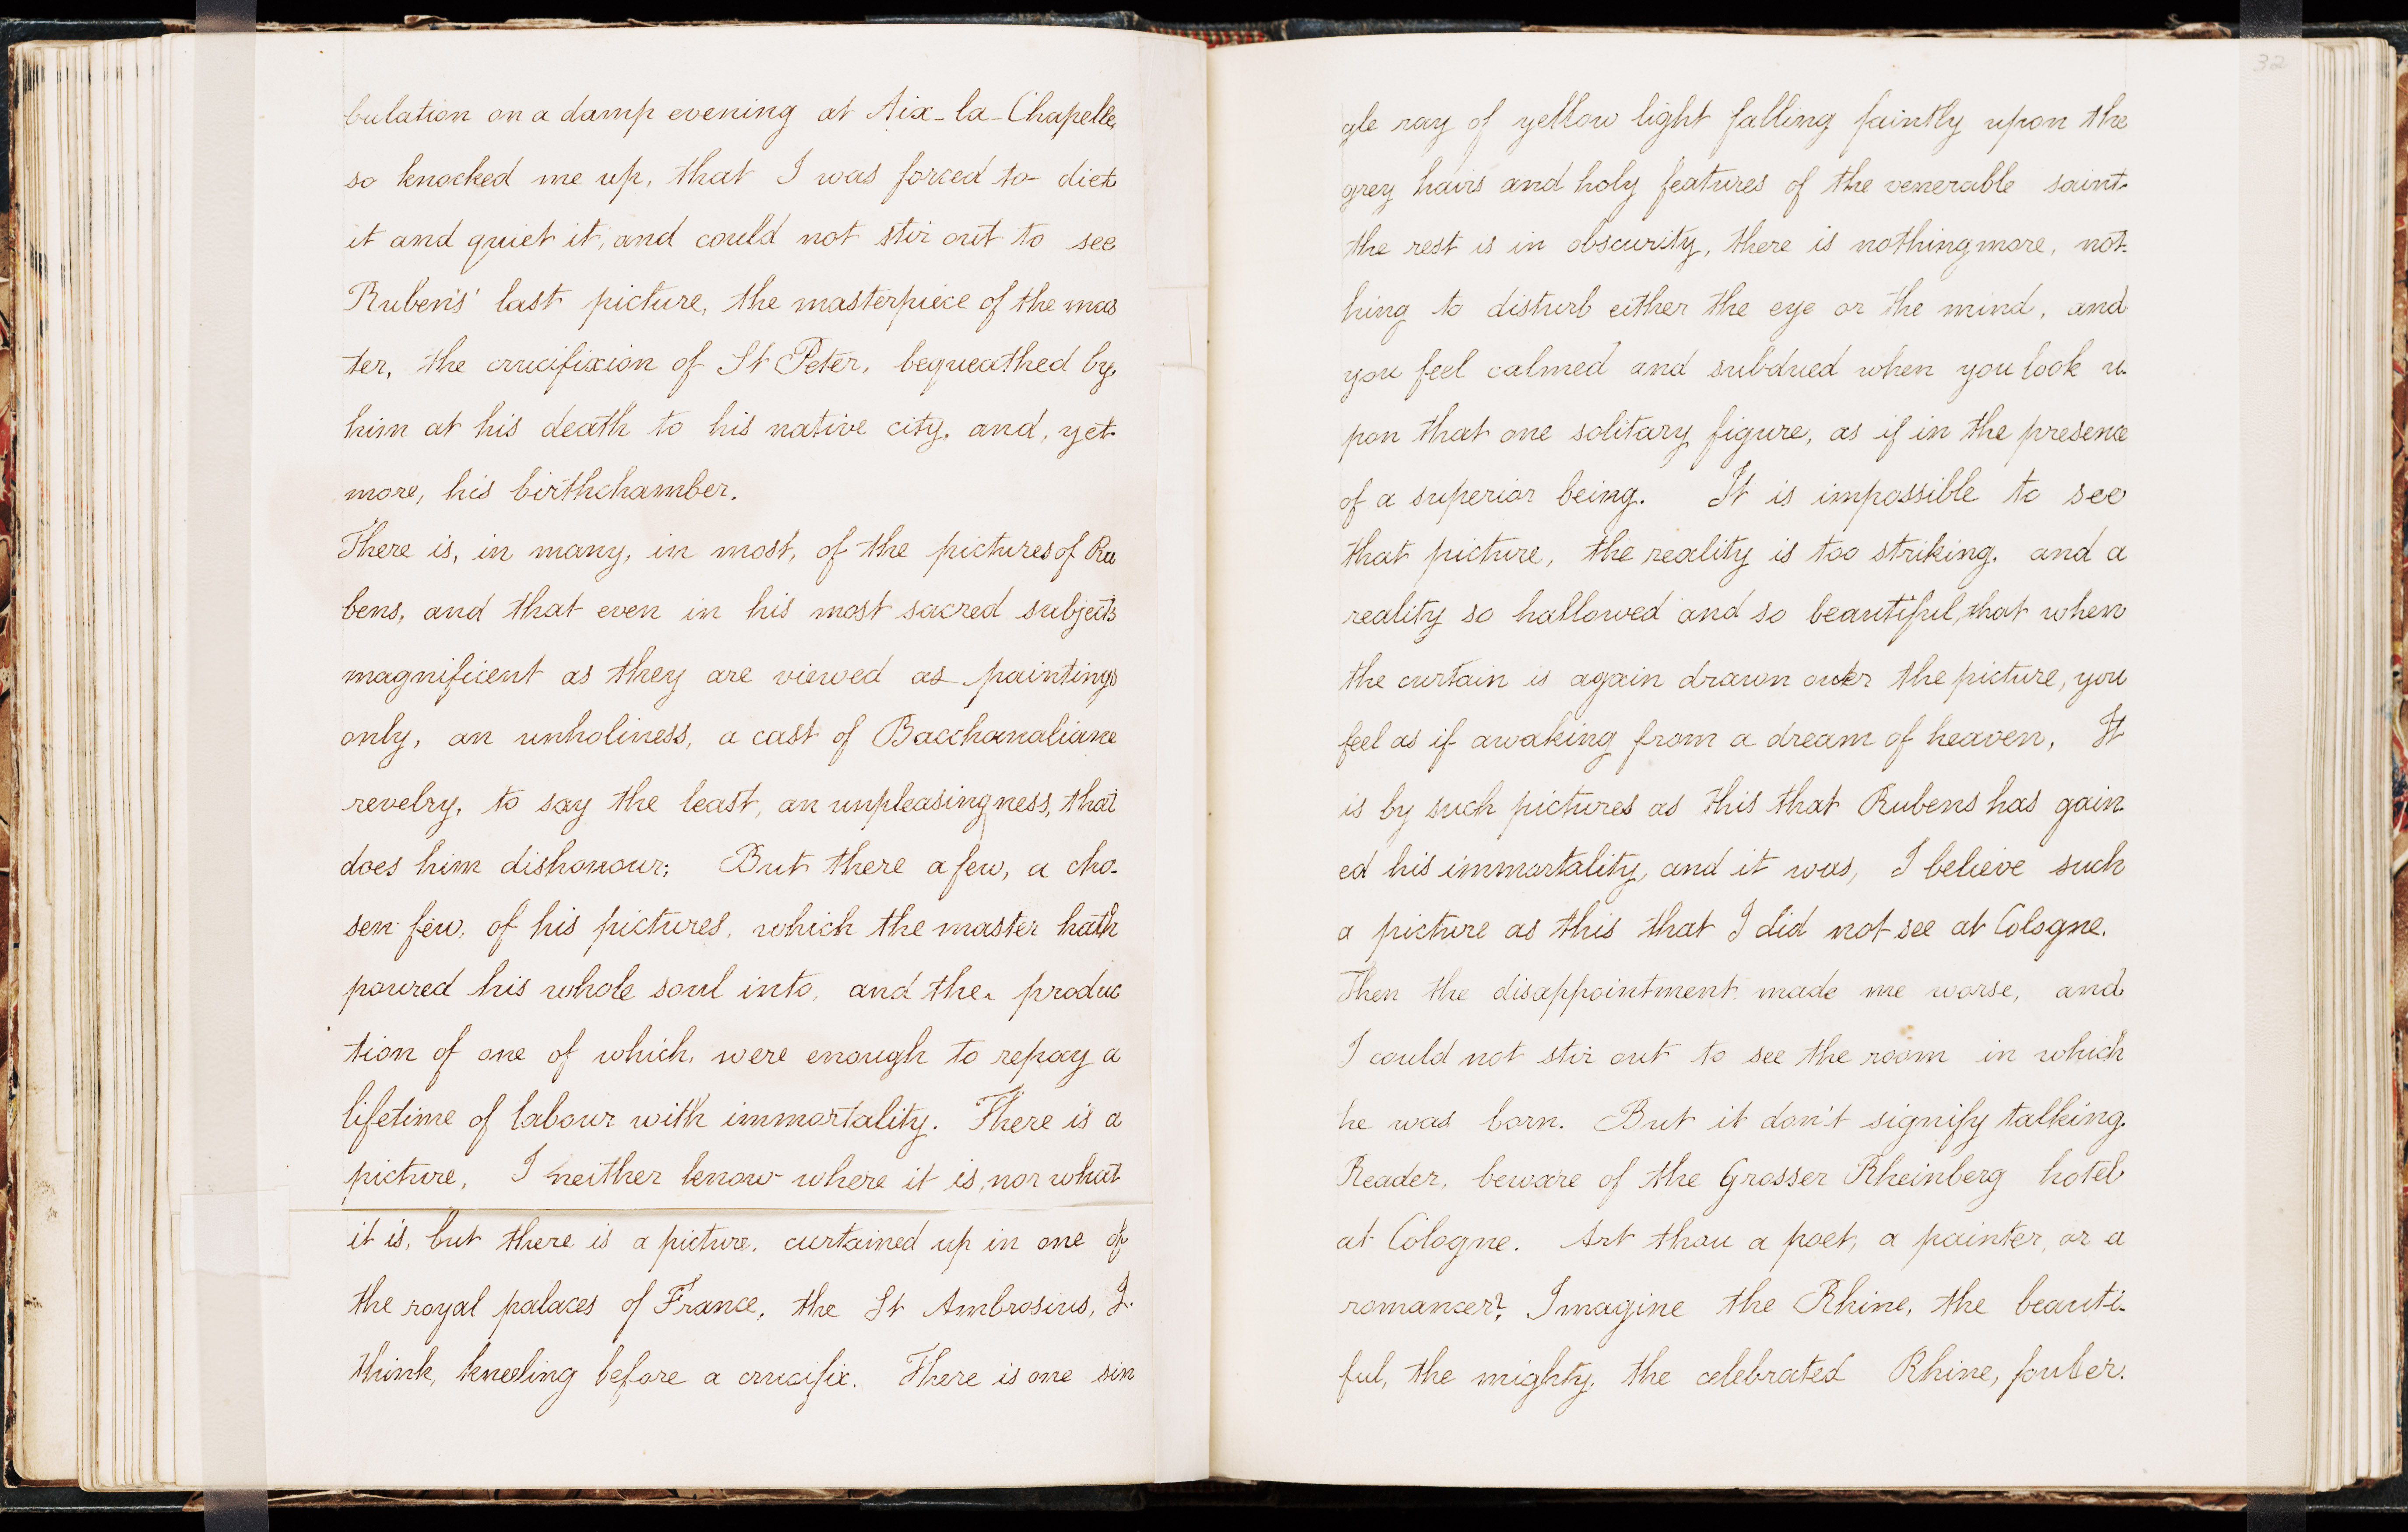 bulation on a damp evening at Aix-la-Chapelle,
so knocked me up, that I was forced to- diet
it and quiet it, and could not stir out to see
Ruben's' last picture, the masterpiece of the mas
ter, the crucifixion of St Peter, bequeathed by,
him at his death to his native city, and, yet
more, his birthchamber.
There is, in many, in most, of the pictures of Ru
bens, and that even in his most sacred subjects
magnificent as they are viewed as paintings
only, an unholiness, a cast of Bacchanaliane
revelry, to say the least, an unpleasingness, that
does him dishonour; But there a few, a cho-
sen few, of his pictures, which the master hath
poured his whole soul into, and the produc
tion of one of which, were enough to repay a
lifetime of labour with immortality. There is a
picture, I neither know where it is, nor what
it is, but there is a picture, curtained up in one of
the royal palaces of France, the St Ambrosius, I
think, kneeling before a crucifix. There is one sin
32
gle ray of yellow light falling faintly upon the
grey hairs and holy features of the venerable saint-
the rest is in obscurity, there is nothing more, not-
hing to disturb either the eye or the mind, and
you feel calmed and subdued when you look u-
pon that one solitary figure, as if in the presence
of a superior being. It is impossible to see
that picture, the reality is too striking, and a
reality so hallowed and so beautiful, that when
the curtain is again drawn over the picture, you
feel as if awaking from a dream of heaven, It
is by such pictures as this that Rubens has gain-
ed his immortality, and it was, I believe such
a picture as this that I did not see at Cologne.
Then the disappointment made me worse, and
I could not stir out to see the room in which
he was born. But it don't signify talking.
Reader, beware of the Grosser Rheinberg hotel
at Cologne. Art thou a poet, a painter, or a
romancer? Imagine the Rhine, the beauti-
ful, the mighty, the celebrated Rhine,